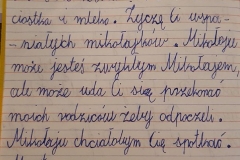 ciastka i mleko. Życzę Ci wspa-
niałych mikołajków. Mikołaju
może jesteś zwykłym Mikołajem,
ale może uda Ci się przekonać
moich rodziców żeby odpoczeli.
Mikołaju chciałobym Cię spotkać.